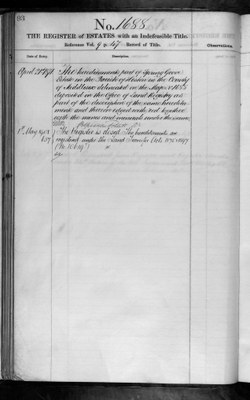 No. 1688
THE REGISTER of ESTATES with an Indefeasible Title.
Reference Vol. 9 p. 67 Record of Title.
Observations.
Date of Entry.
Description
April 21st
The hereditaments part of Spring Grove
Estate in the Parish of Heston in the County
of Middlesex delineated in the Map No 1688
deposited in the Office of Land Registry as
part of the description of the same heredita-
ments and thereon edged with red together
with the mines and minerals under the same
1st May 1901
The Register is closed. The hereditaments are
registered under the Land Transfer Acts 1875 & 1897